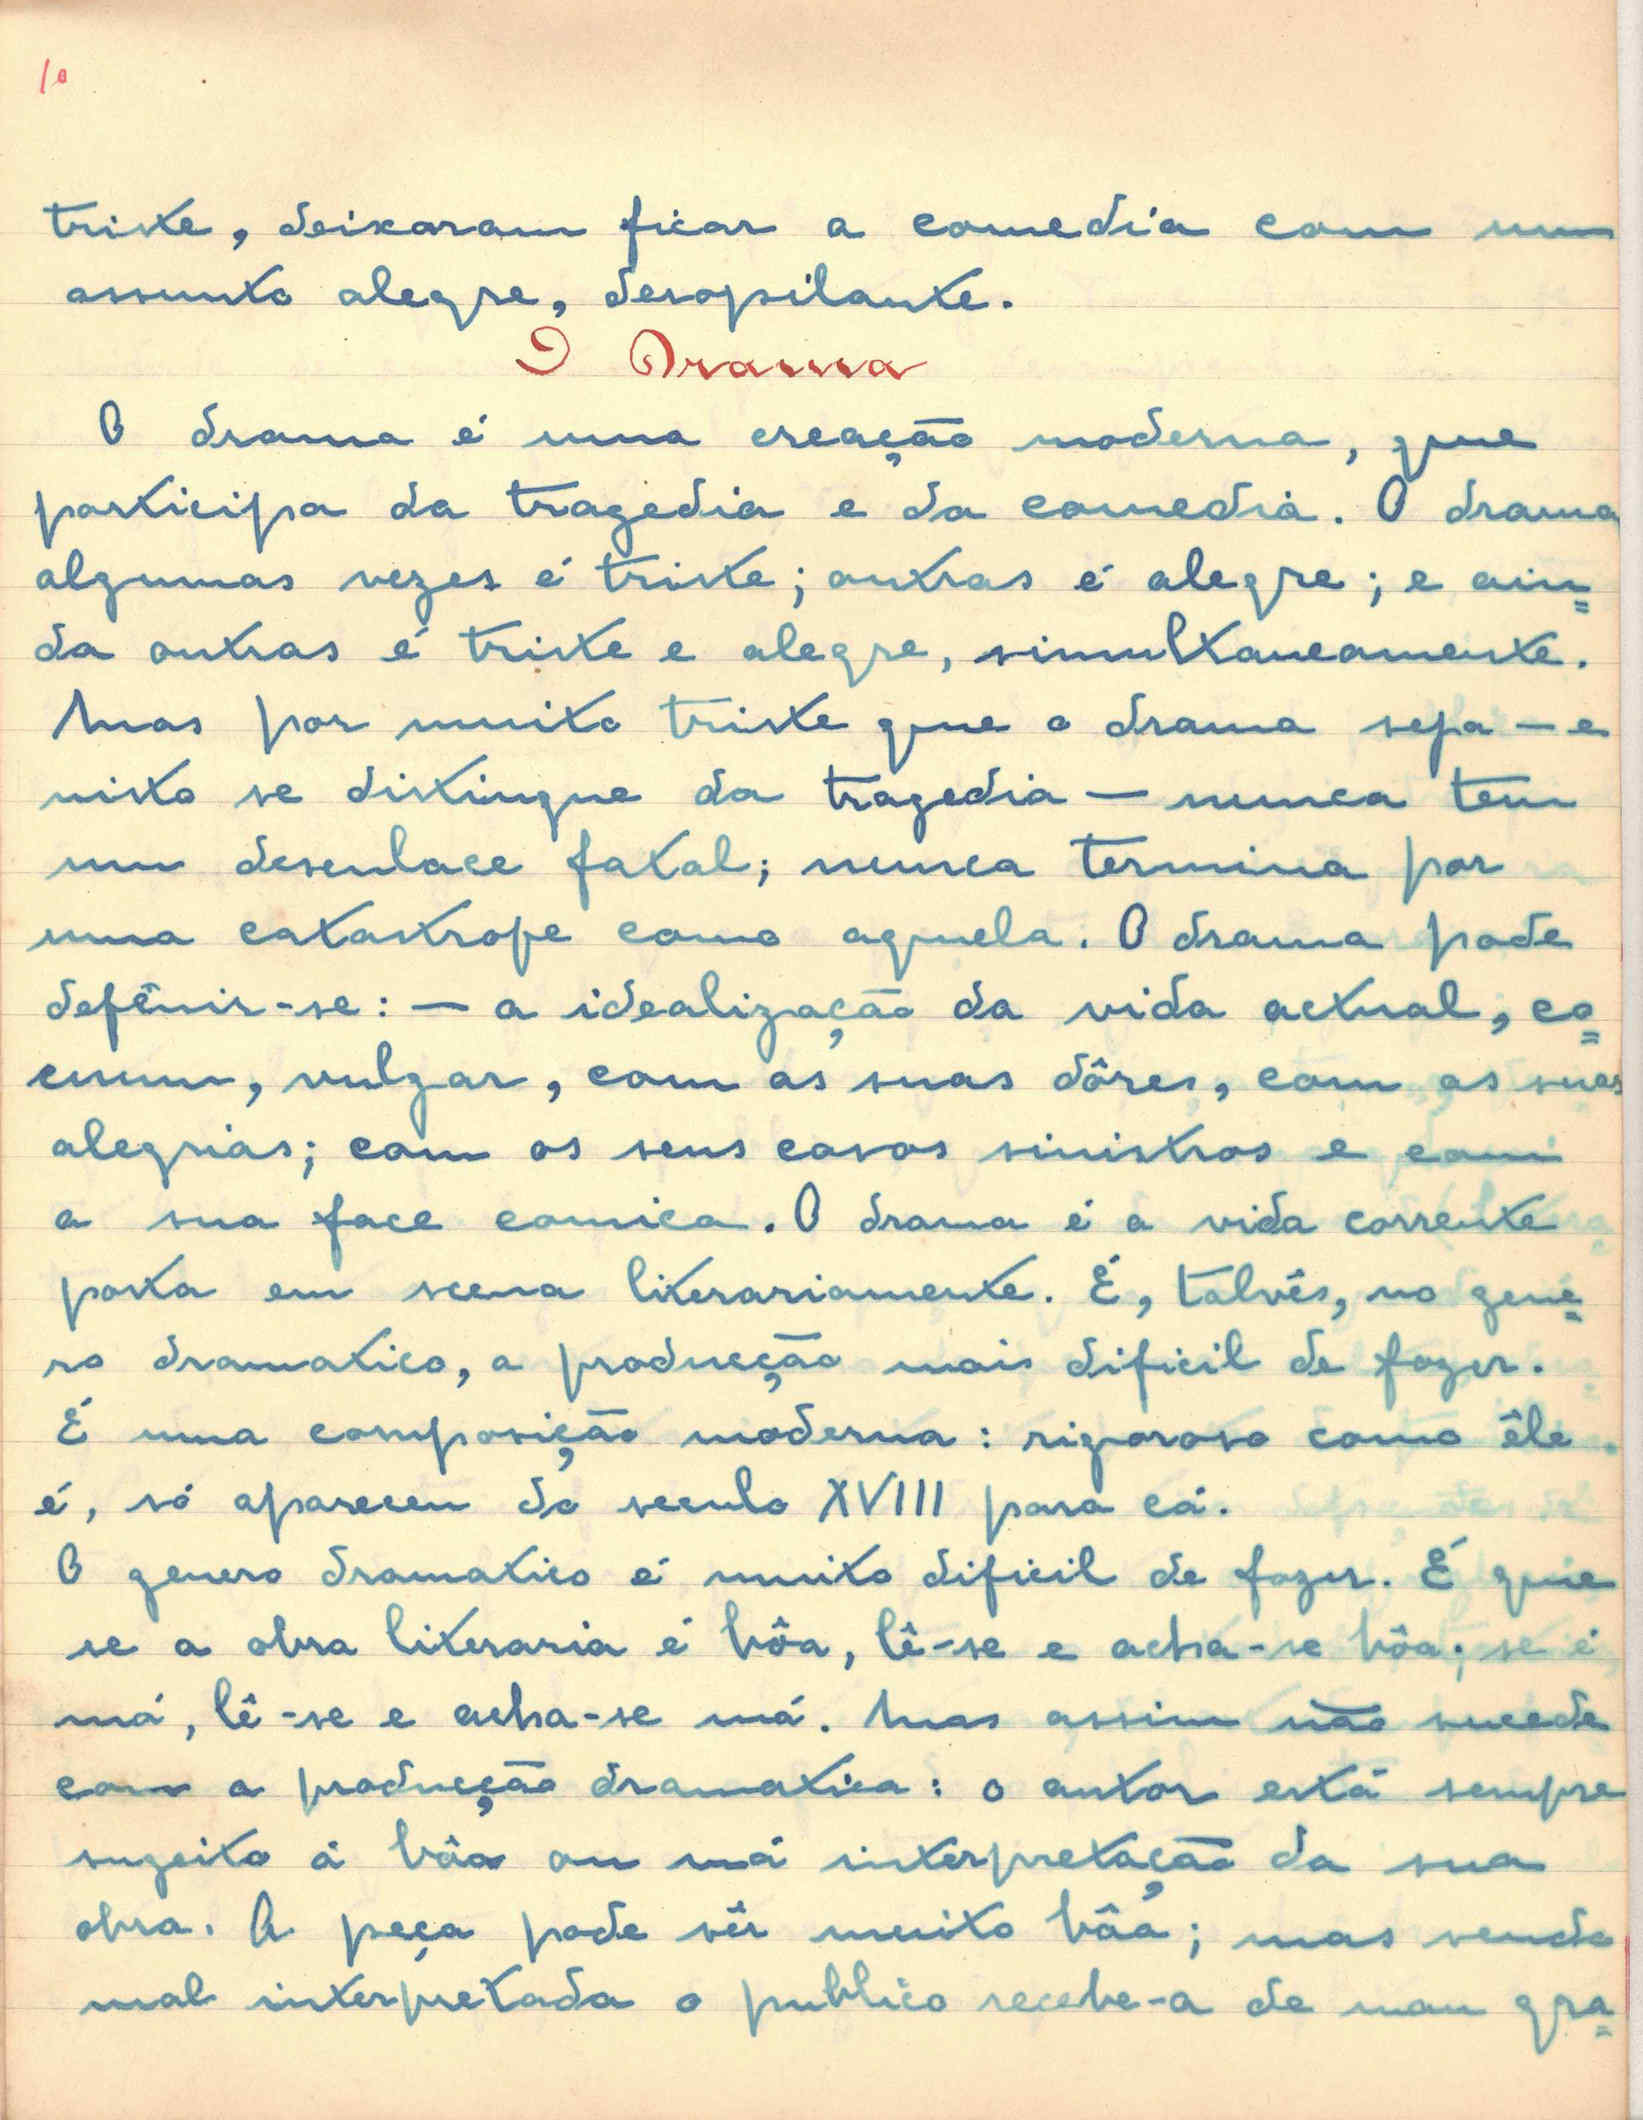 10
triste, deixaram ficar a comedia com um
assunto alegre, desopilante.
O Drama
O drama é uma creação moderna, que
participa da tragedia e da comedia. O drama
algumas vezes é triste; outras é alegre; e ain=
da outras é triste e alegre, simultaneamente.
Mas por muito triste que o drama seja — e
nisto se distingue da tragedia — nunca tem
um desenlace fatal; nunca termina por
uma catastrofe como aquela. O drama pode
definir-se: — a idealização da vida actual, co=
mum, vulgar, com as suas dôres, com as suas
alegrias; com os seus casos sinistros e com
a sua face comica. O drama é a vida corrente
posta em scena literariamente. É, talvês, no gene=
ro dramatico, a producção mais dificil de fazer.
É uma composição moderna: rigoroso como êle
é, só apareceu do seculo XVIII para cá.
O genero dramatico é muito dificil de fazer. É que
se a obra literaria é bôa, lê-se e acha-se bôa; se é
má, lê-se e acha-se má. Mas assim não sucede
com a producção dramatica: o autor está sempre
sugeito á bôa ou má interpretação da sua
obra. A peça pode sêr muito bôa; mas sendo
mal interpretada o publico recebe-a de mau gra=